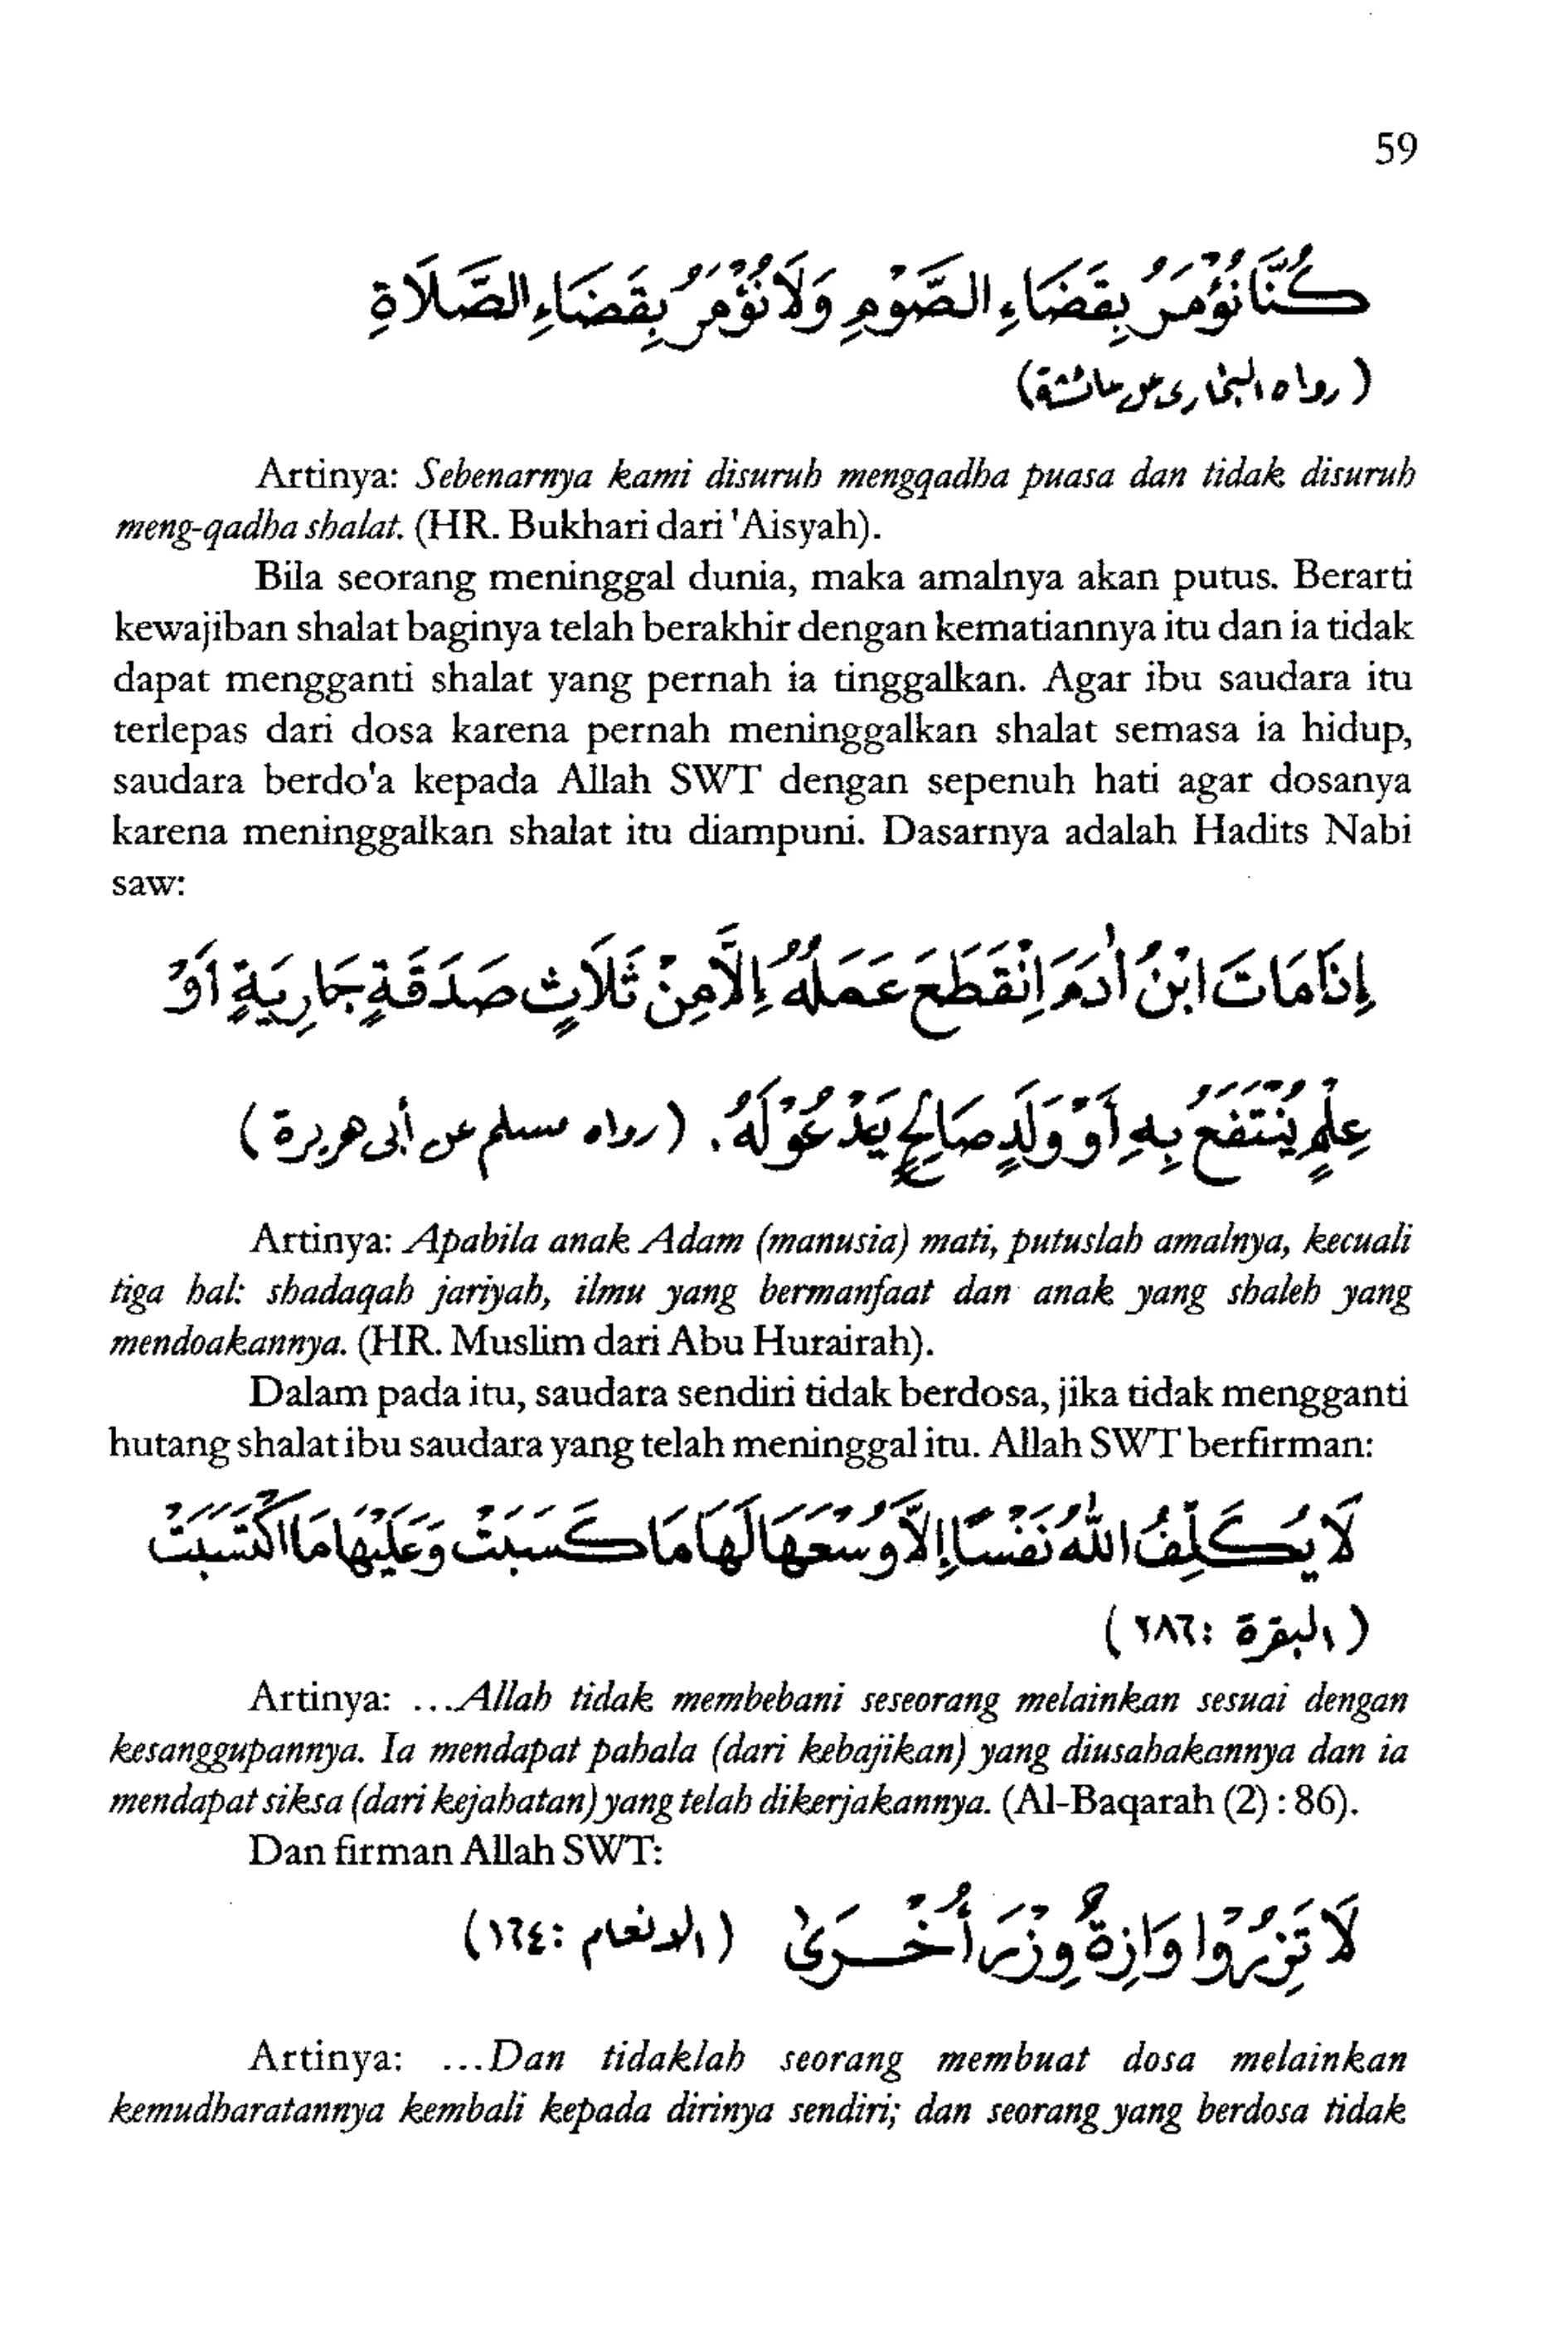 59
كُنَّا نُؤْمَرُ بِقَضَاءِ الصَّوْمِ وَلَا نُؤْمَرُ بِقَضَاءِ الصَّلَاةِ
(رواه البخارى عن عائشة)
Artinya: Sebenarnya kami disuruh mengqadha puasa dan tidak disuruh
meng-qadha shalat. (HR. Bukhari dari 'Aisyah).
Bila seorang meninggal dunia, maka amalnya akan putus. Berarti
kewajiban shalat baginya telah berakhir dengan kematiannya itu dan ia tidak
dapat mengganti shalat yang pernah ia tinggalkan. Agar ibu saudara itu
terlepas dari dosa karena pernah meninggalkan shalat semasa ia hidup,
saudara berdo'a kepada Allah SWT dengan sepenuh hati agar dosanya
karena meninggalkan shalat itu diampuni. Dasarnya adalah Hadits Nabi
saw:
إِذَا مَاتَ ابْنُ اٰدَمَ اِنْقَطَعَ عَمَلُهُ إِلَّا مِنْ ثَلَاثٍ صَدَقَةٍ جَارِيَةٍ أَوْ
عِلْمٍ يُنْتَفَعُ بِهِ أَوْ وَلَدٍ صَالِحٍ يَدْعُوْ لَهُ. (رواه مسلم عن أبى هريرة)
Artinya: Apabila anak Adam (manusia) mati, putuslah amalnya, kecuali
tiga hal: shadaqah jariyah, ilmu yang bermanfaat dan anak yang shaleh yang
mendoakannya. (HR. Muslim dari Abu Hurairah).
Dalam pada itu, saudara sendiri tidak berdosa, jika tidak mengganti
hutang shalat ibu saudara yang telah meninggal itu. Allah SWT berfirman:
لَا يُكَلِّفُ اللهُ نَفْسًا إِلَّا وُسْعَهَا لَهَا مَا كَسَبَتْ وَعَلَيْهَا مَا اكْتَسَبَتْ
(البقرة :٢٨٦)
Artinya: ...Allah tidak membebani seseorang melainkan sesuai dengan
kesanggupannya. Ia mendapat pahala (dari kebajikan) yang diusahakannya dan ia
mendapat siksa (dari kejahatan) yang telah dikerjakannya. (Al-Baqarah (2) : 86).
Dan firman Allah SWT:
لَا تَزِرُوْا وَازِرَةٌ وِزْرَ أُخْرَىٰ (الانعام :١٦٤)
Artinya: ...Dan tidaklah seorang membuat dosa melainkan
kemudharatannya kembali kepada dirinya sendiri; dan seorang yang berdosa tidak